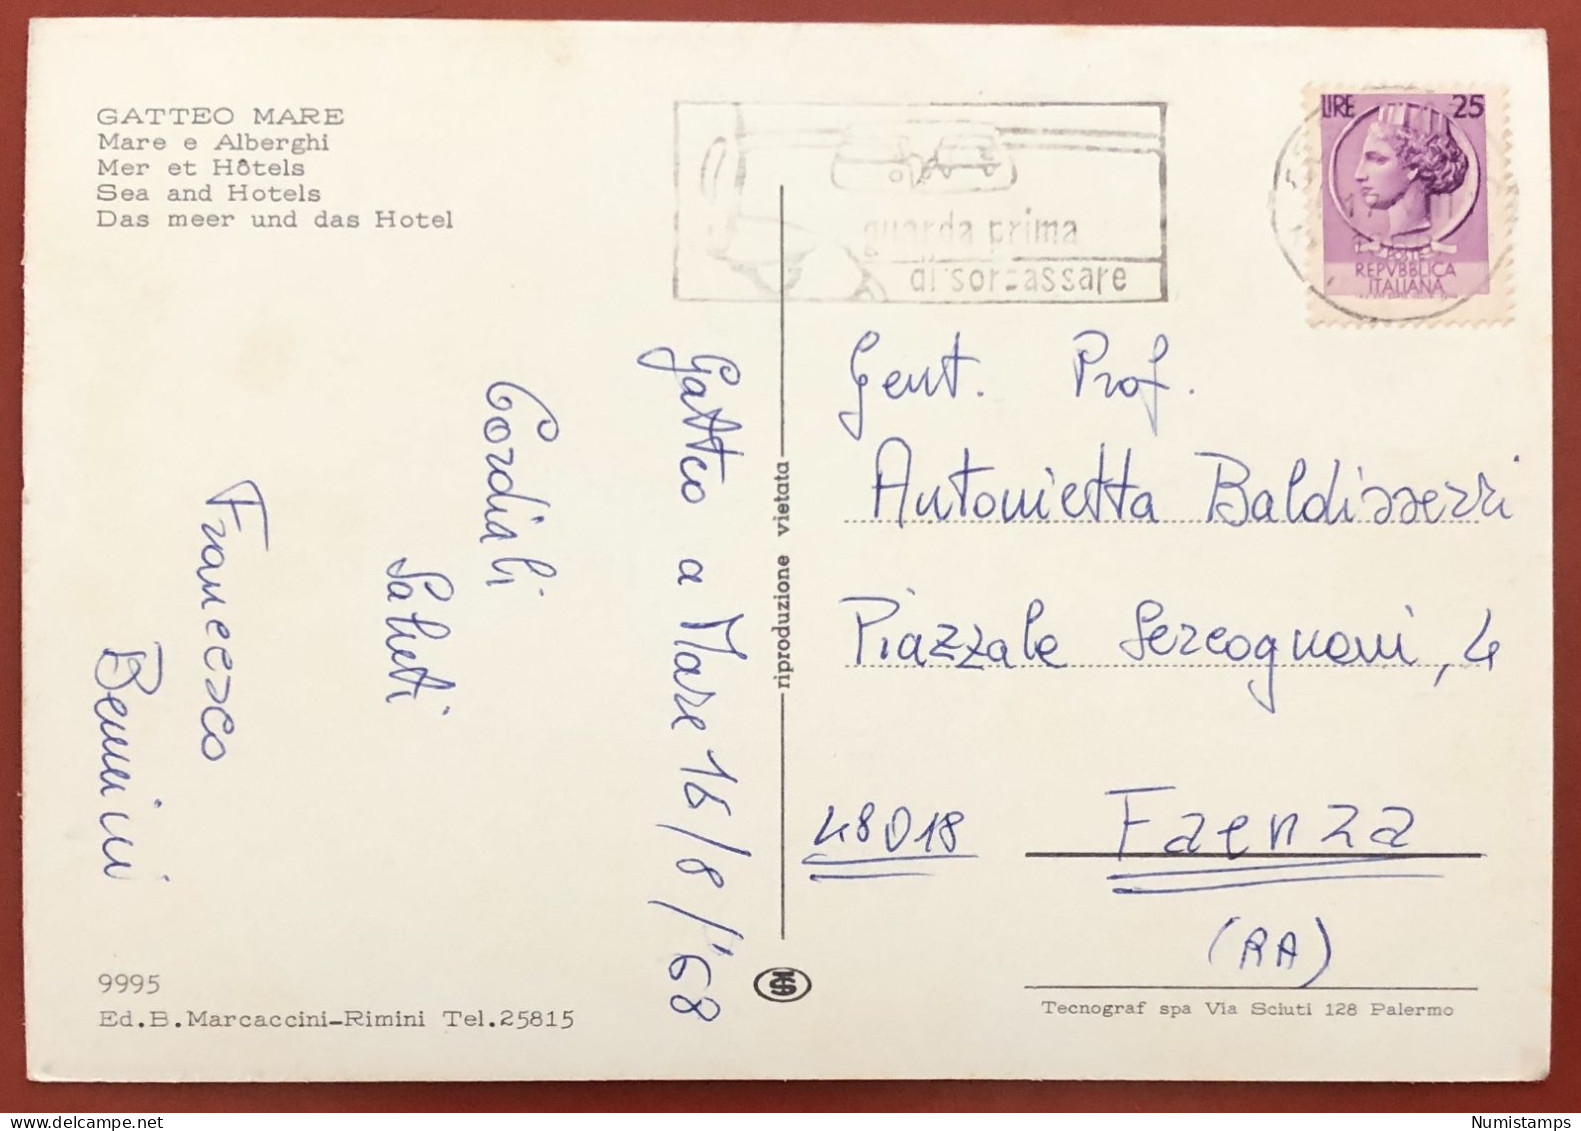 GATTEO MARE
Mare e Alberghi
Mer et Hôtels
Sea and Hotels
Das meer und das Hotel
guarda prima
di sorpassare
LIRE 25
POSTE
REPVBBLICA
ITALIANA
Gatteo a Mare 16/8/'68
Cordiali
Saluti
Francesco
riproduzione vietata
Gent. Prof.
Antonietta Baldisserri
Piazzale Sercognani, 4
48018 Faenza
(RA)
9995
Ed.B.Marcaccini-Rimini Tel.25815
Tecnograf spa Via Sciuti 128 Palermo
Numistamps